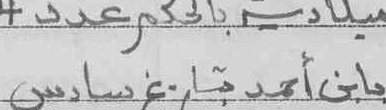 ميلادية بالحكم عدد 4
بابن أحمد بتاريخ سادس